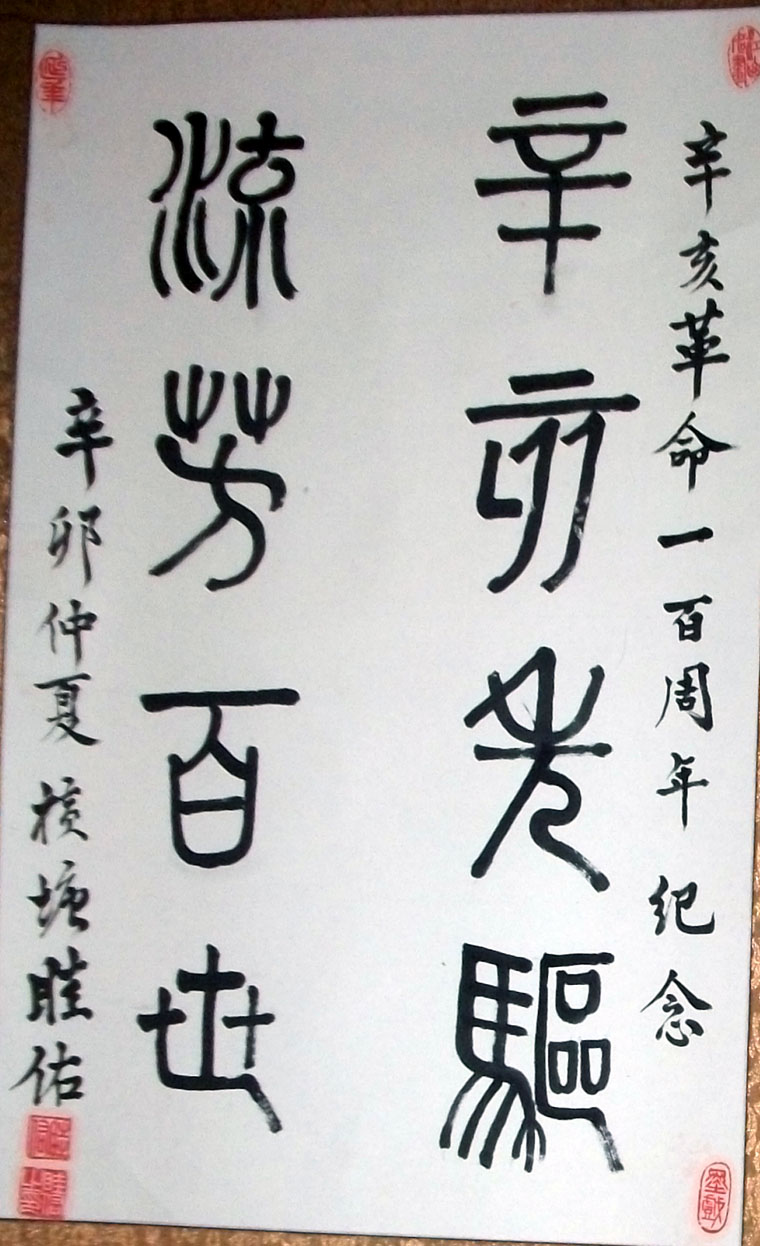 辛亥革命一百周年纪念
辛亥先驅
流芳百世
辛卯仲夏 横塘眭佑
墨戲